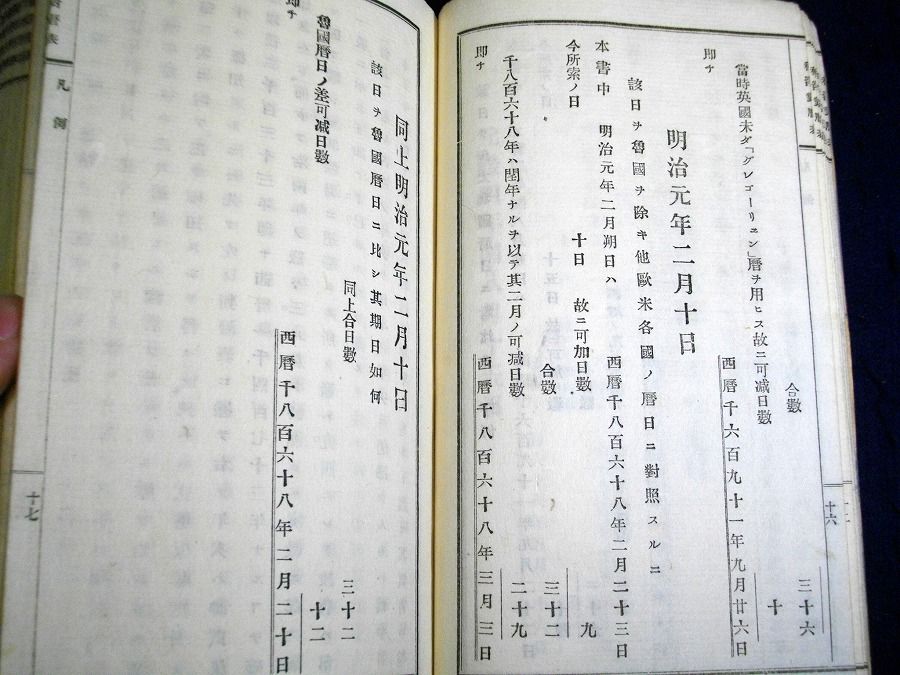 合數 三十六
當時英國未ダ「グレゴーリエン」曆ヲ用ヒス故ニ可减日數 十
即チ 西曆千六百九十一年九月廿六日
明治元年二月十日
該日ヲ魯國ヲ除キ他歐米各國ノ曆日ニ對照スルニ
本書中 明治元年二月朔日ハ 西曆千八百六十八年二月二十三日
今所索ノ日 十日 故ニ可加日數 九
合數 三十二
千八百六十八年ハ閏年ナルヲ以テ其二月ノ可减日數 二十九
即チ 西曆千八百六十八年三月三日
十六
同上明治元年二月十日
該日ヲ魯國曆日ニ比シ其期日如何
同上合日數 三十二
魯國曆日ノ差可减日數 十二
即チ 西曆千八百六十八年二月二十日
凡例
十七